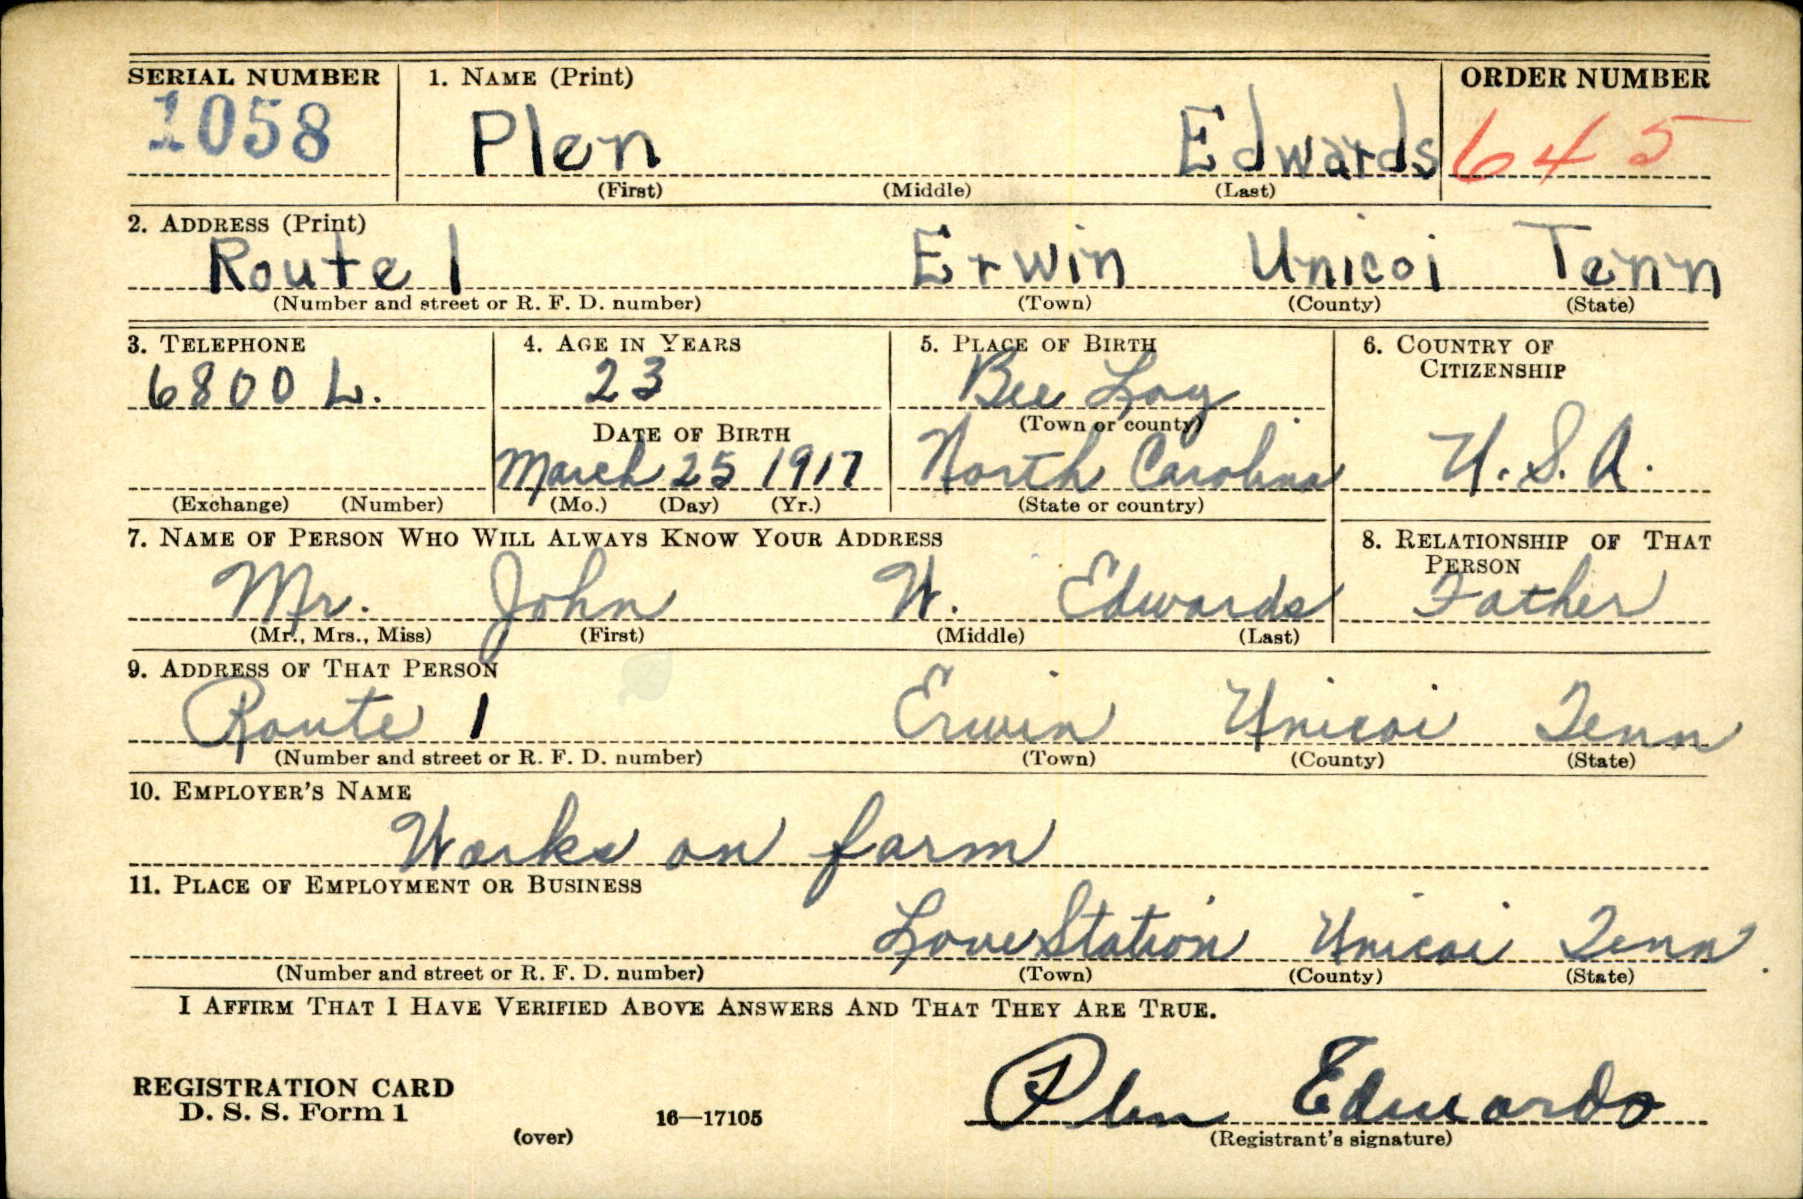 SERIAL NUMBER 1. NAME (Print) ORDER NUMBER
1058 Plen Edwards 645
(First) (Middle) (Last)
2. ADDRESS (Print)
Route 1 Erwin Unicoi Tenn
(Number and street or R. F. D. number) (Town) (County) (State)
3. TELEPHONE 4. AGE IN YEARS 5. PLACE OF BIRTH 6. COUNTRY OF CITIZENSHIP
6800 L. 23 Bee Log
(Town or county)
DATE OF BIRTH
March 25 1917 North Carolina U.S.A.
(Exchange) (Number) (Mo.) (Day) (Yr.) (State or country)
7. NAME OF PERSON WHO WILL ALWAYS KNOW YOUR ADDRESS 8. RELATIONSHIP OF THAT PERSON
Mr. John W. Edwards Father
(Mr., Mrs., Miss) (First) (Middle) (Last)
9. ADDRESS OF THAT PERSON
Route 1 Erwin Unicoi Tenn
(Number and street or R. F. D. number) (Town) (County) (State)
10. EMPLOYER'S NAME
Works on farm
11. PLACE OF EMPLOYMENT OR BUSINESS
Love Station Unicoi Tenn.
(Number and street or R. F. D. number) (Town) (County) (State)
I AFFIRM THAT I HAVE VERIFIED ABOVE ANSWERS AND THAT THEY ARE TRUE.
REGISTRATION CARD
D. S. S. Form 1 16—17105 Plen Edwards
(over) (Registrant's signature)